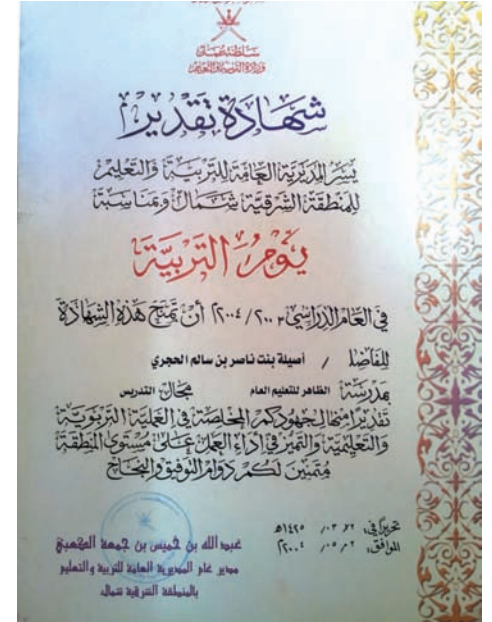 سلطنة عمان
وزارة التربية والتعليم
شهادة تقدير
يسر المديرية العامة للتربية والتعليم
للمنطقة الشرقية شمال وبمناسبة
يوم التربية
في العام الدراسي ٢٠٠٣ / ٢٠٠٤م أن تمنح هذه الشهادة
للفاضل / أصيلة بنت ناصر بن سالم الحجري
بمدرسة الظاهر للتعليم العام بمجال التدريس
تقديرا منها لجهودكم المخلصة في العملية التربوية
والتعليمية والتميز في اداء العمل على مستوى المنطقة
متمنين لكم دوام التوفيق والنجاح
تحريرا في: ١٢ / ٠٣ / ١٤٢٥هـ
الموافق: ٠٢ / ٠٥ / ٢٠٠٤م
عبدالله بن خميس بن جمعة الكعبي
مدير عام المديرية العامة للتربية والتعليم
بالمنطقة الشرقية شمال